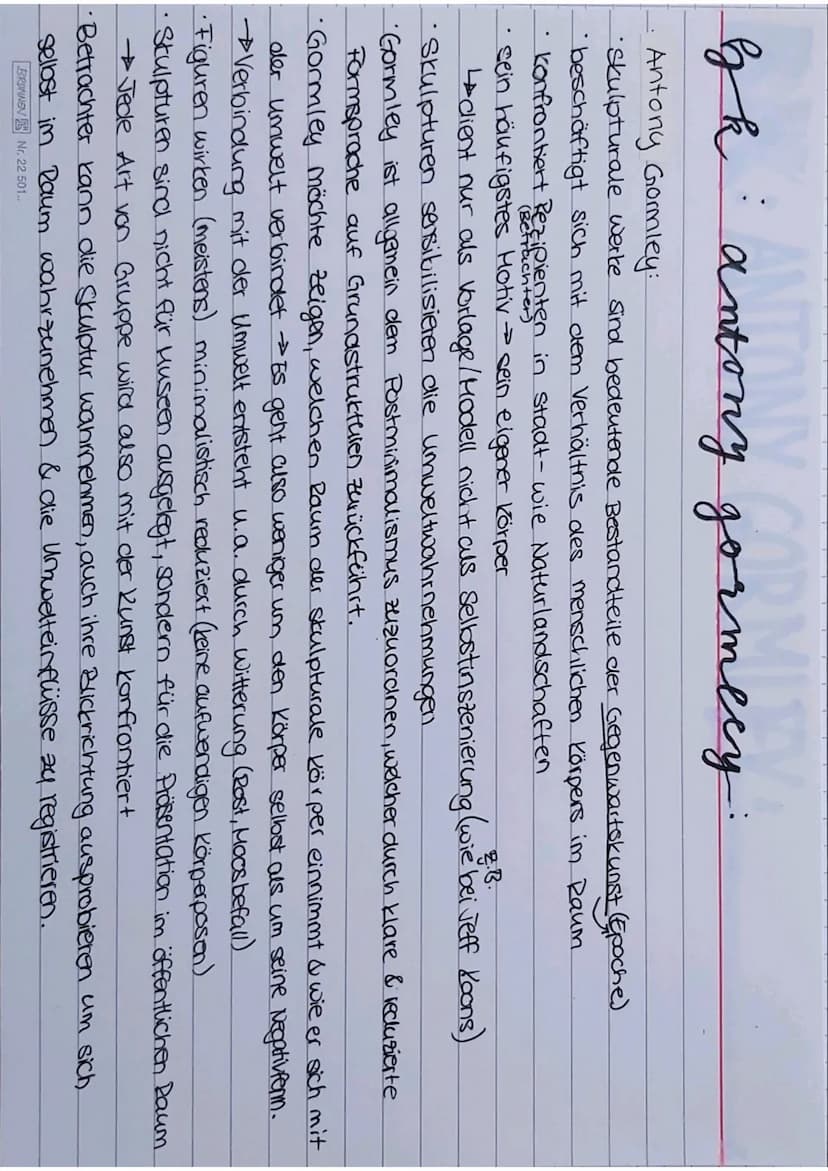 bk: antony gormley:
· Antony Gormley:
· skulpturale Werke sind bedeutende Bestandteile der Gegenwartskunst (Epoche)
· beschäftigt sich mit dem Verhältnis des menschlichen Körpers im Raum
· konfrontiert Rezipienten in Stadt- wie Naturlandschaften
(Betrachter)
· sein häufigstes Motiv → sein eigener Körper
↳ dient nur als Vorlage/Modell nicht als Selbstinszenierung (wie z.B. bei Jeff Koons)
· Skulpturen sensibilisieren die Umweltwahrnehmungen
· Gormley ist allgemein dem Postminimalismus zuzuordnen, welcher durch klare & reduzierte
Formsprache auf Grundstrukturen zurückführt.
· Gormley möchte zeigen, welchen Raum der skulpturale Körper einnimmt & wie er sich mit
der Umwelt verbindet → Es geht also weniger um den Körper selbst als um seine Negativform.
→ Verbindung mit der Umwelt entsteht u.a. durch Witterung (Rost, Moosbefall)
· Figuren wirken (meistens) minimalistisch reduziert (keine aufwendigen Körperposen)
· Skulpturen sind nicht für Museen ausgelegt, sondern für die Präsentation im öffentlichen Raum
→ Jede Art von Gruppe wird also mit der Kunst konfrontiert
· Betrachter kann die Skulptur wahrnehmen, auch ihre Blickrichtung ausprobieren um sich
selbst im Raum wahrzunehmen & die Umwelteinflüsse zu registrieren.
BRUNNEN Nr. 22 501..